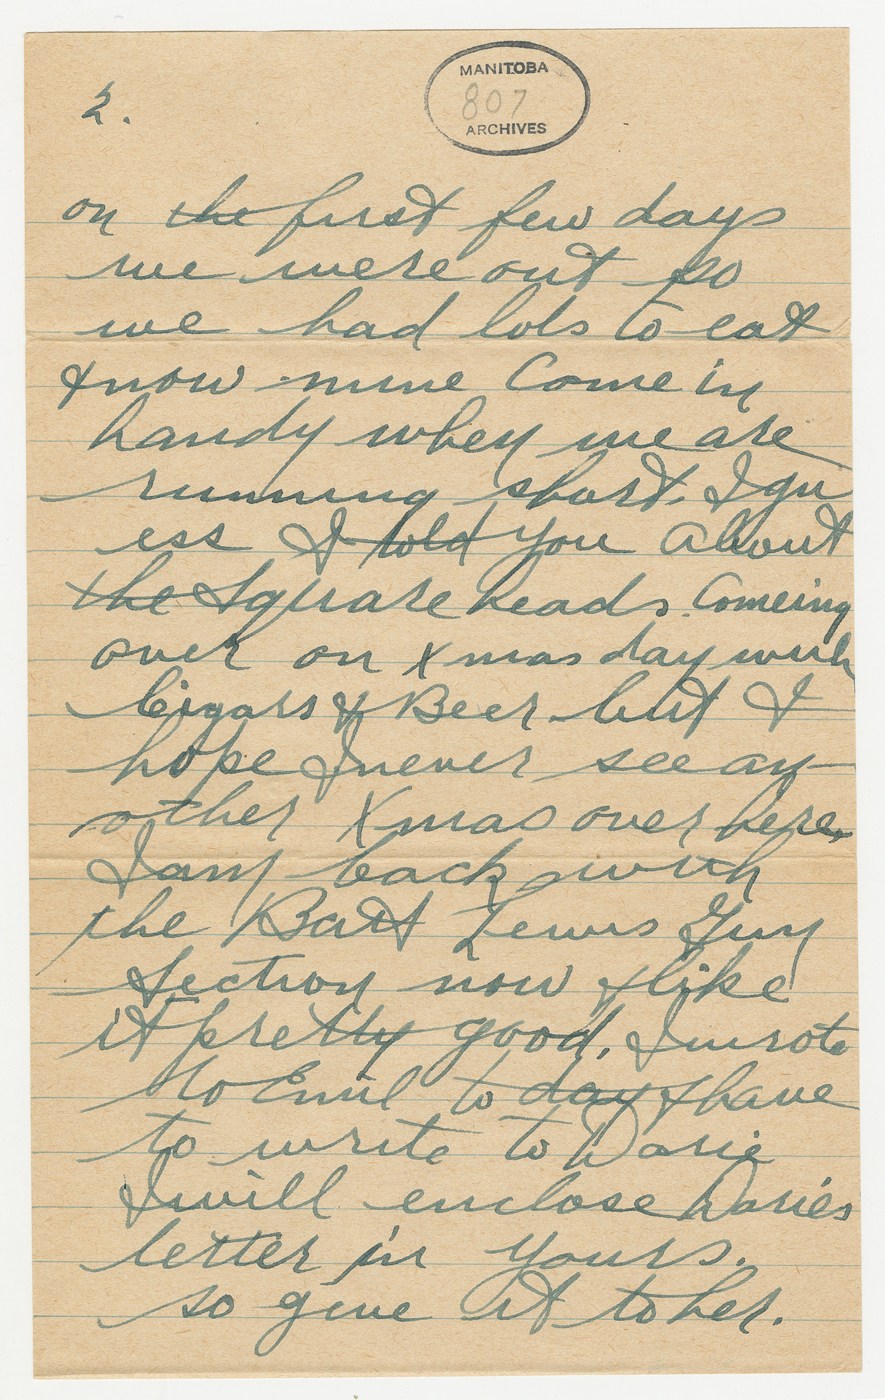 2.
MANITOBA
807
ARCHIVES
on the first few days
we were out so
we had lots to eat
& now mine Come in
handy when we are
running short. I gu
ess I told you about
the Square heads. Comeing
over on Xmas day with
Cigars & Beer but I
hope I never see an-
other Xmas over here,
I am back with
the Batt Lewis Gun
Section now & like
it pretty good. I wrote
to Emil to day & have
to write to Dorie
I will enclose Dories
letter in yours.
so give it to her.